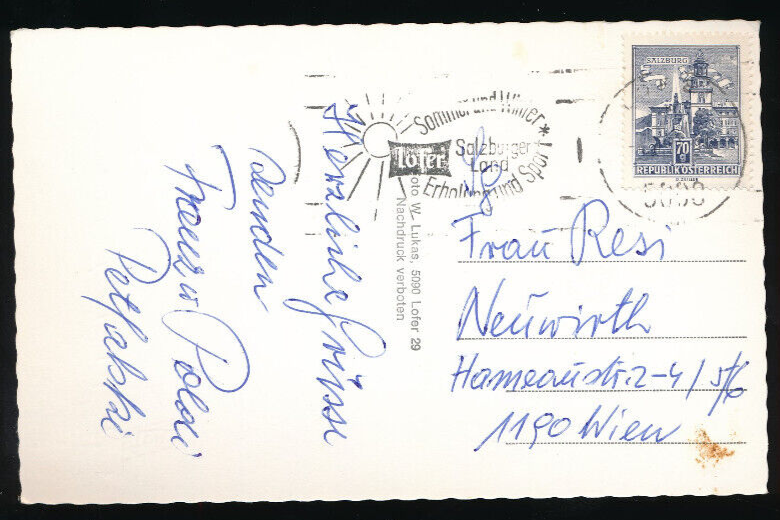 Herzliche Grüsse
senden
Franz u Poldi
SALZBURG
70
g
REPUBLIK ÖSTERREICH
Sommer und Winter
Lofer
Salzburger
Land
Erholung und Sport
5090
Foto W. Lukas, 5090 Lofer 29
Nachdruck verboten
Frau Resi
Neuwirth
Hameaustr. 2-4/5/6
1190 Wien